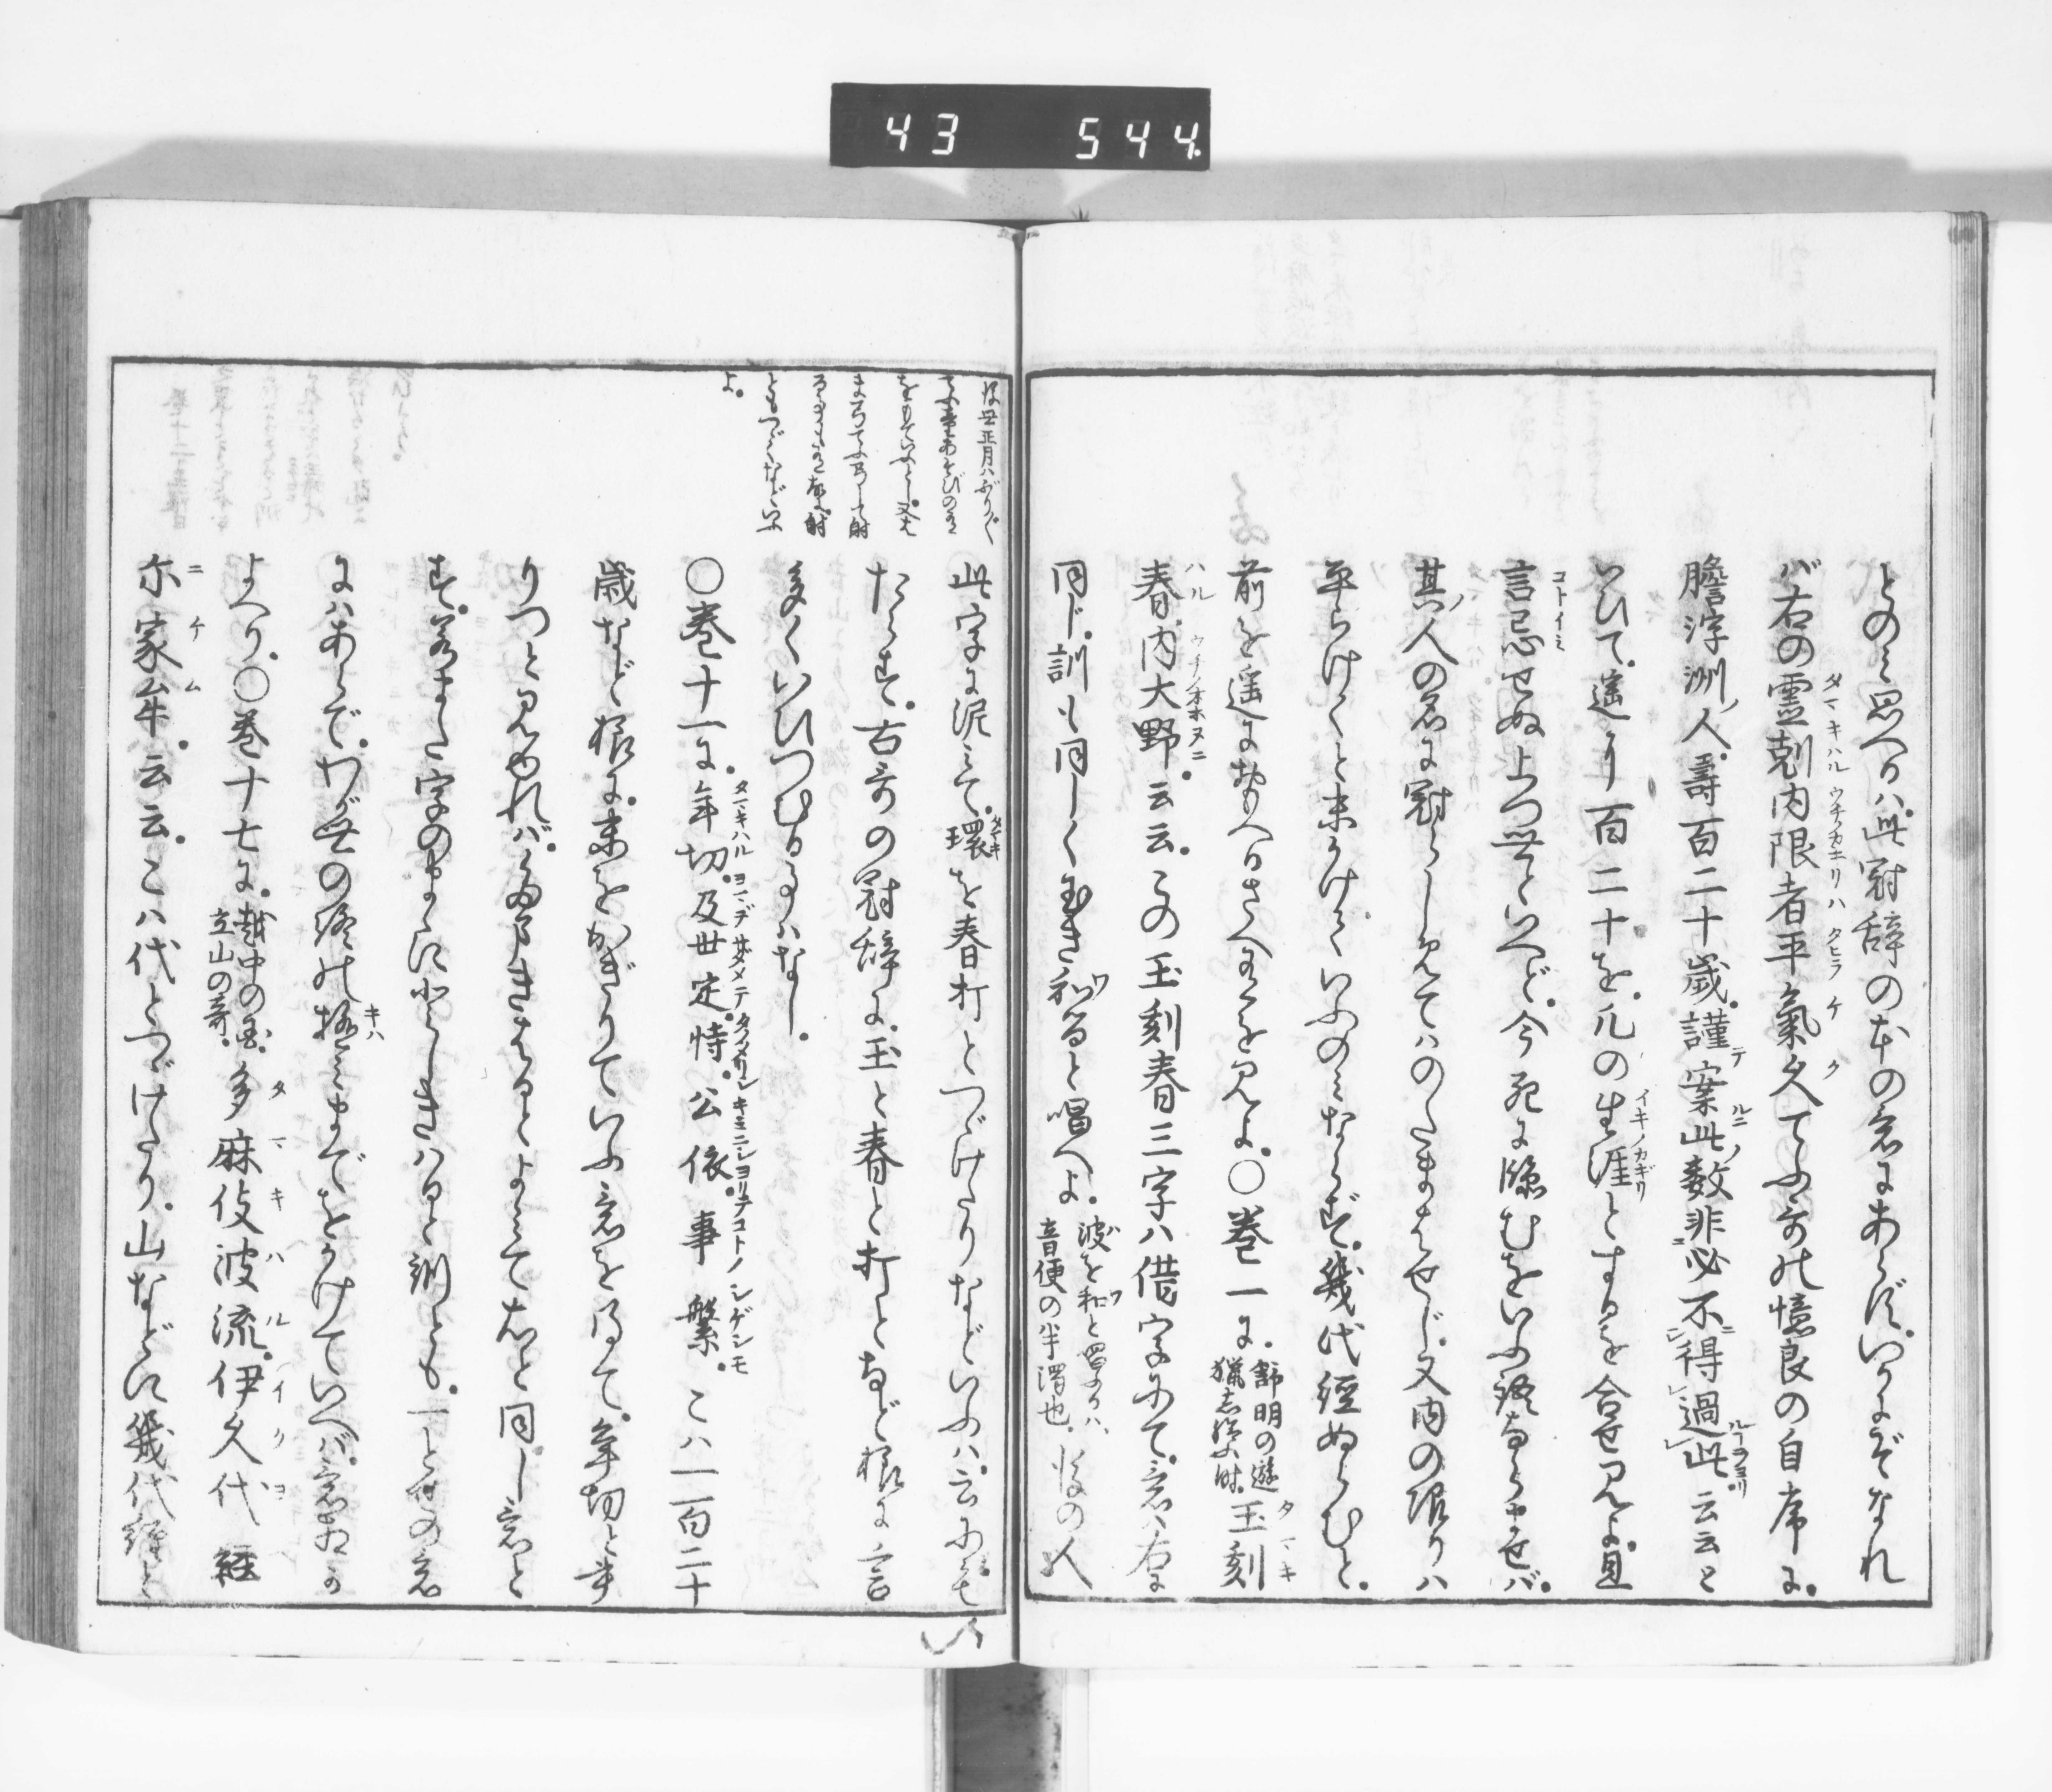 43 544.
とのミ思へるハ此冠辞の本の意にあらずいかにぞなれ
バ右の霊剋内限者平氣久てふ哥の憶良の自序に
瞻浮洲人壽百二十歳謹案此數非必不得過此云云と
いひて遥けり百二十を凡の生涯とするを合せ見よ且
言忌せぬ上つ世といへど今死に臨むをいふ終ならませバ
其人の名に冠らしめてハのたまはせじ又内の限りハ
平らけくと末かけていふのミならず幾代経ぬらむと
前を遥におもへるさへあるを見よ○巻一に
舒明の遊
猟志給ふ時
玉刻
春内大野云云この玉刻春三字ハ借字にて意ハ右に
同じ訓も同しくたまき和ると唱へよ
波を和と唱るハ
音便の半濁也
後の人
後世正月ハぶりぶり
てふ童あそびの有
をもていふべし又た
まうちてふ
ともつゞくなどいふ
よ
此字に泥ミて環を春打とつゞけたりなどいふハ云にも
たらず古哥の冠辞に玉と春と打となど様に言
多くいひつむる事ハなし
○巻十一に年切及世定恃公依事繁こハ一百二十
歳など様に末をかぎりていふ意を得て年切と書
りつと見ゆれバたまきはるとよミて右と同し意と
す若また字のまゝにとしきハると訓とも一とせの意
にハあらでわが世の終の極ミまでをかけていへバ意ちか
よへり○巻十七に
越中の国
立山の哥
多麻伎波流伊久代経
尓家牟云云こハ代とつゞけたり山などに幾代経と